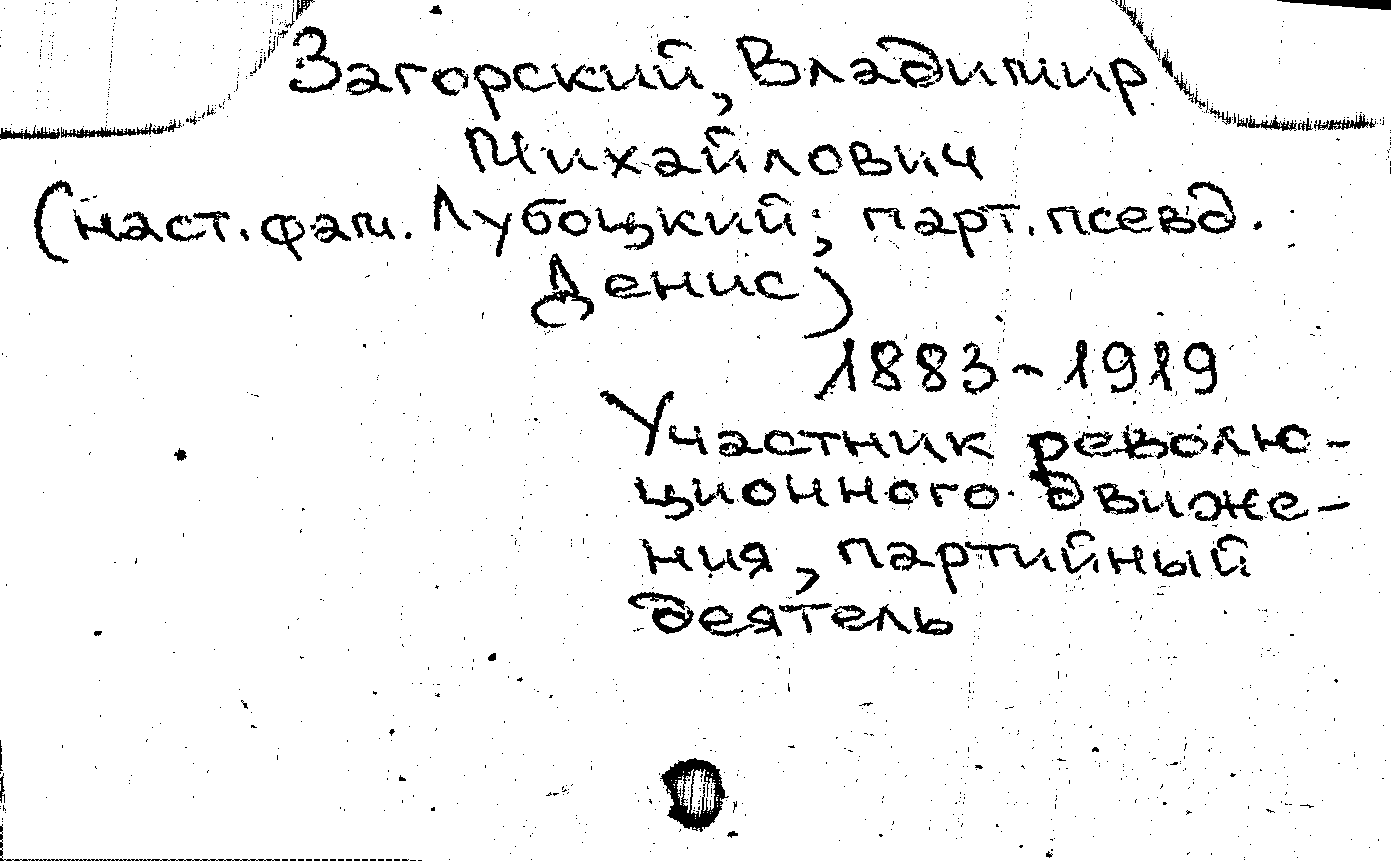 Загорский, Владимир
Михайлович
(наст. фам. Лубоцкий; парт. псевд.
Денис)
1883-1919
Участник револю-
ционного движе-
ния, партийный
деятель